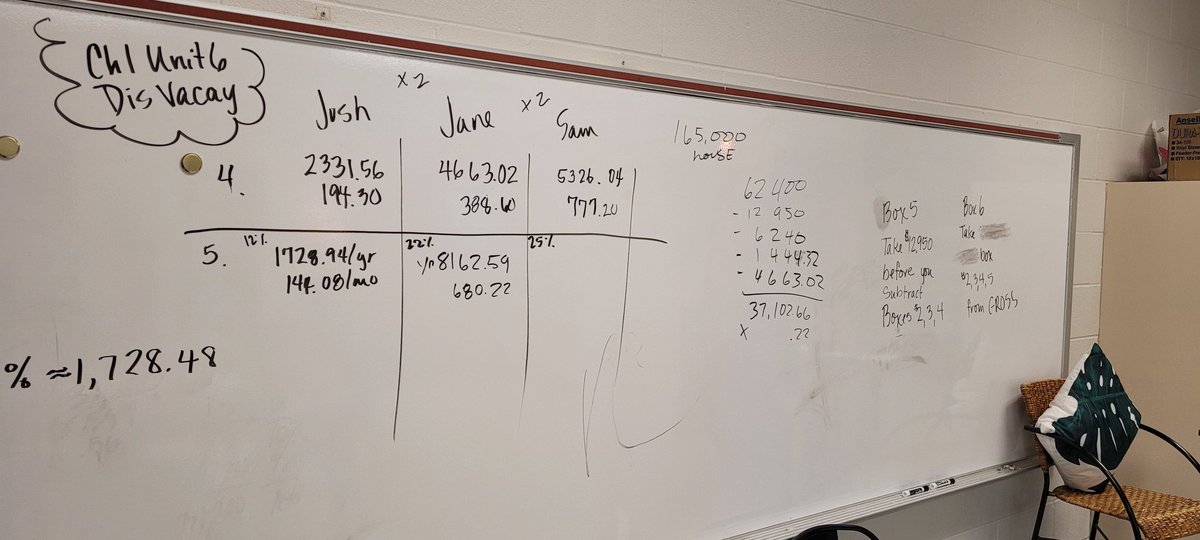 Ch1 Unit 6
Dis Vacay
Josh
x2
Jane
x2
Sam
4.
2331.56
194.30
4663.02
388.60
5326.04
777.20
5.
12%
1728.94/yr
144.08/mo
22%
yr 8162.59
680.22
25%
% ≈1,728.48
165,000
house
62400
- 12 950
- 6240
- 1444.32
- 4663.02
37,102.66
x .22
Box 5
Take $12,950
before you
subtract
Boxes #2,3,4
Box 6
Take
box
#2,3,4,5
from GROSS
Ansell